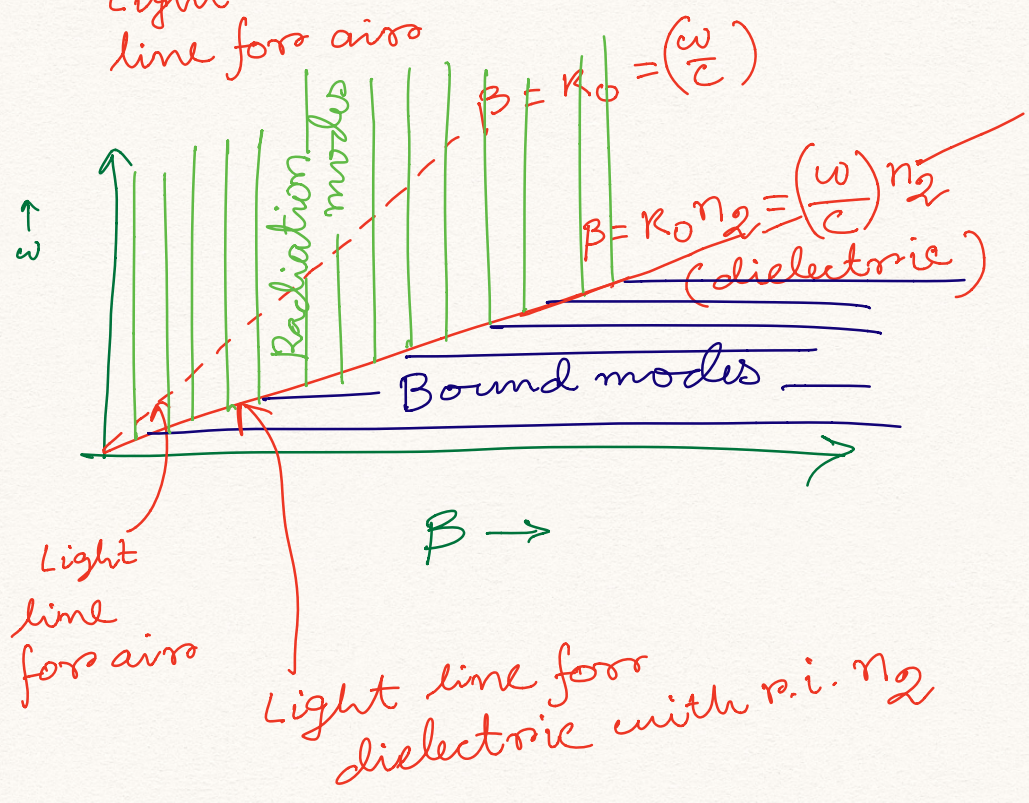 Light
line for air
β = K0 = (ω/c)
Radiation
modes
ω →
β = K0 n2 = (ω/c) n2
(dielectric)
Bound modes
β →
Light
line
for air
Light line for
dielectric with r.i. n2